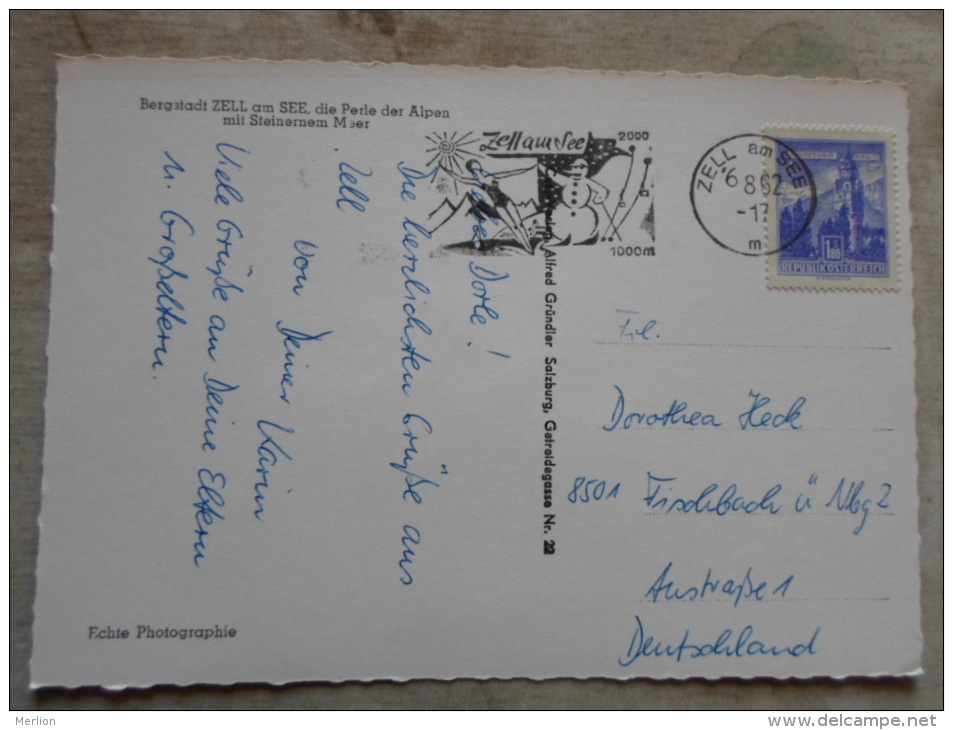 Bergstadt ZELL am SEE, die Perle der Alpen
mit Steinernem Meer
Liebe Dorle!
Die herzlichsten Grüße aus
Zell
von Deiner Karin
Viele Grüße an Deine Eltern
u. Großeltern.
Echte Photographie
Zell am See
2000
1000m
ZELL am SEE
-6.8.62
-17
m
1.80
REPUBLIK ÖSTERREICH
Alfred Gründler Salzburg, Getreidegasse Nr. 22
Frl.
Dorothea Heck
8501 Fischbach ü Nbg 2
Austraße 1
Deutschland
Merlion